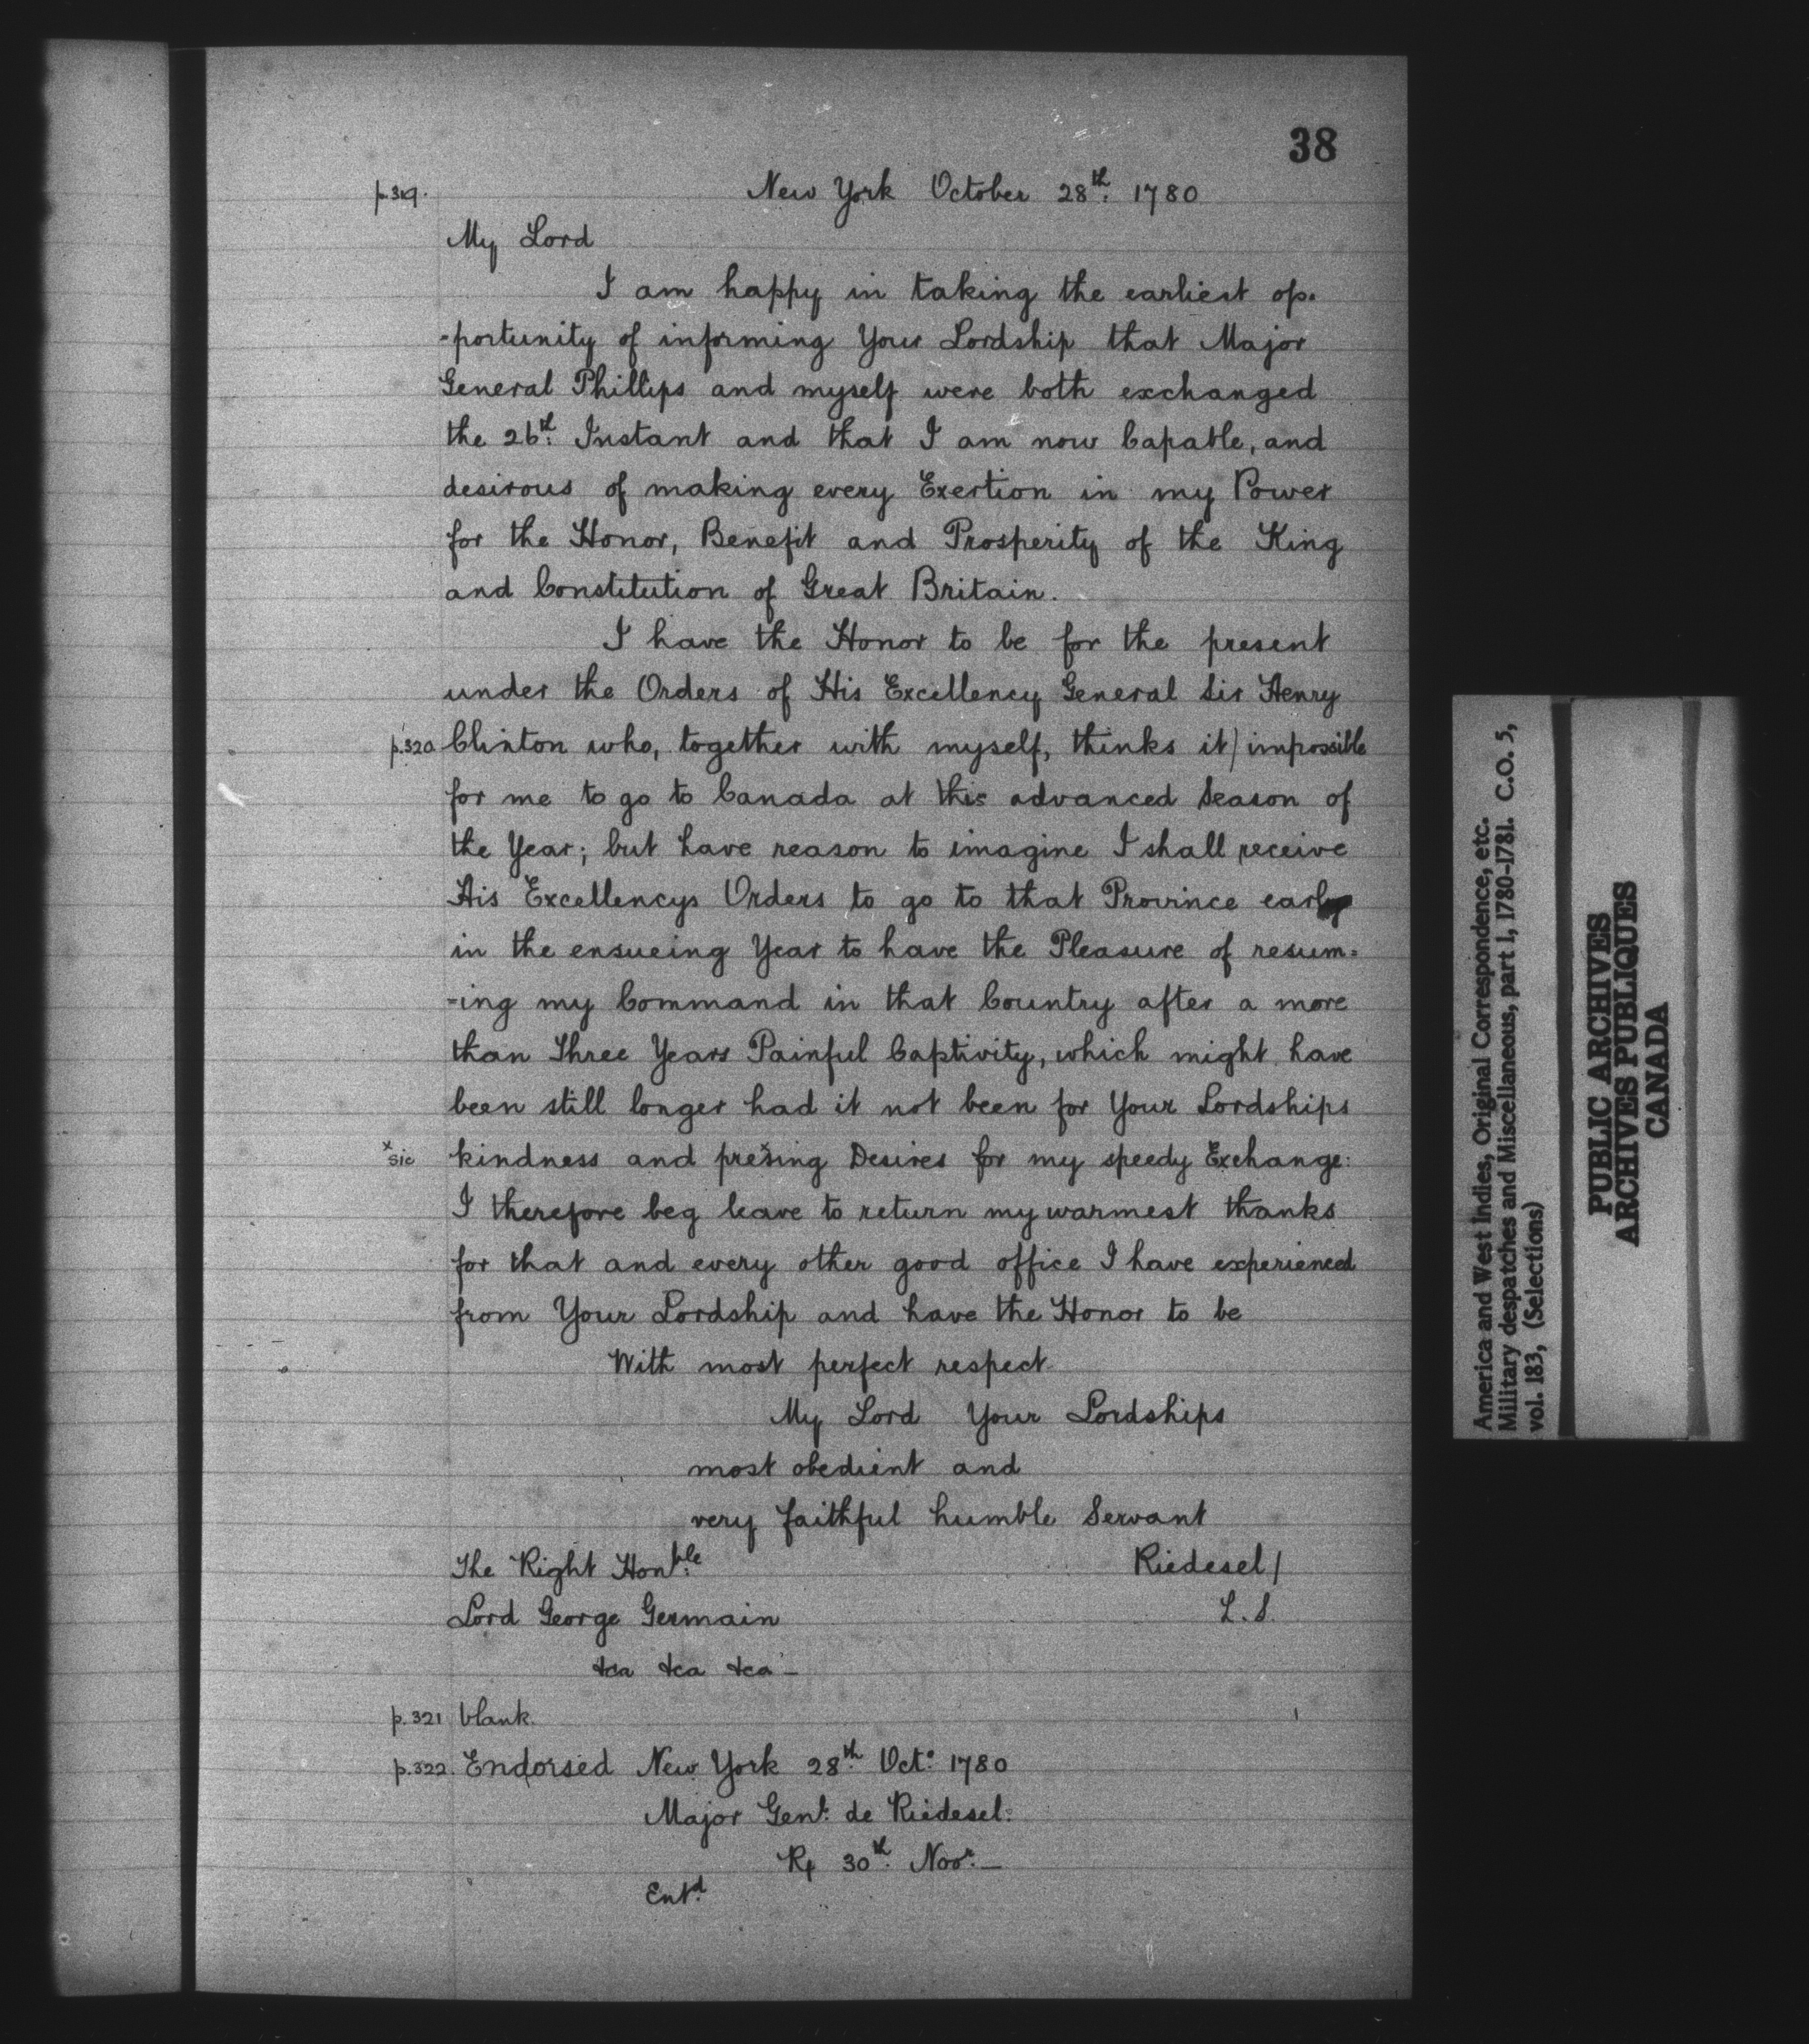 38
p.319. New York October 28th. 1780
My Lord
I am happy in taking the earliest op-
-portunity of informing Your Lordship that Major
General Phillips and myself were both exchanged
the 26th. Instant and that I am now Capable, and
desirous of making every Exertion in my Power
for the Honor, Benefit and Prosperity of the King
and Constitution of Great Britain.
I have the Honor to be for the present
under the Orders of His Excellency General Sir Henry
p.320 Clinton who, together with myself, thinks it/ impossible
for me to go to Canada at this advanced Season of
the Year; but have reason to imagine I shall receive
His Excellencys Orders to go to that Province early
in the ensueing Year to have the Pleasure of resum=
=ing my Command in that Country after a more
than Three Years Painful Captivity, which might have
been still longer had it not been for Your Lordships
x sic kindness and presing Desires for my speedy Exchange:
I therefore beg leave to return my warmest thanks
for that and every other good office I have experienced
from Your Lordship and have the Honor to be
With most perfect respect
My Lord Your Lordships
most obedient and
very faithful humble Servant
The Right Honble. Riedesel/
Lord George Germain L.S.
&ca &ca &ca –
p.321 blank.
p.322. Endorsed New York 28th. Octo. 1780
Major Genl. de Riedesel:
R 30th. Novr. –
Entd.
America and West Indies, Original Correspondence, etc.
Military despatches and Miscellaneous, part 1, 1780-1781. C.O. 5,
vol. 183, (Selections)
PUBLIC ARCHIVES
ARCHIVES PUBLIQUES
CANADA